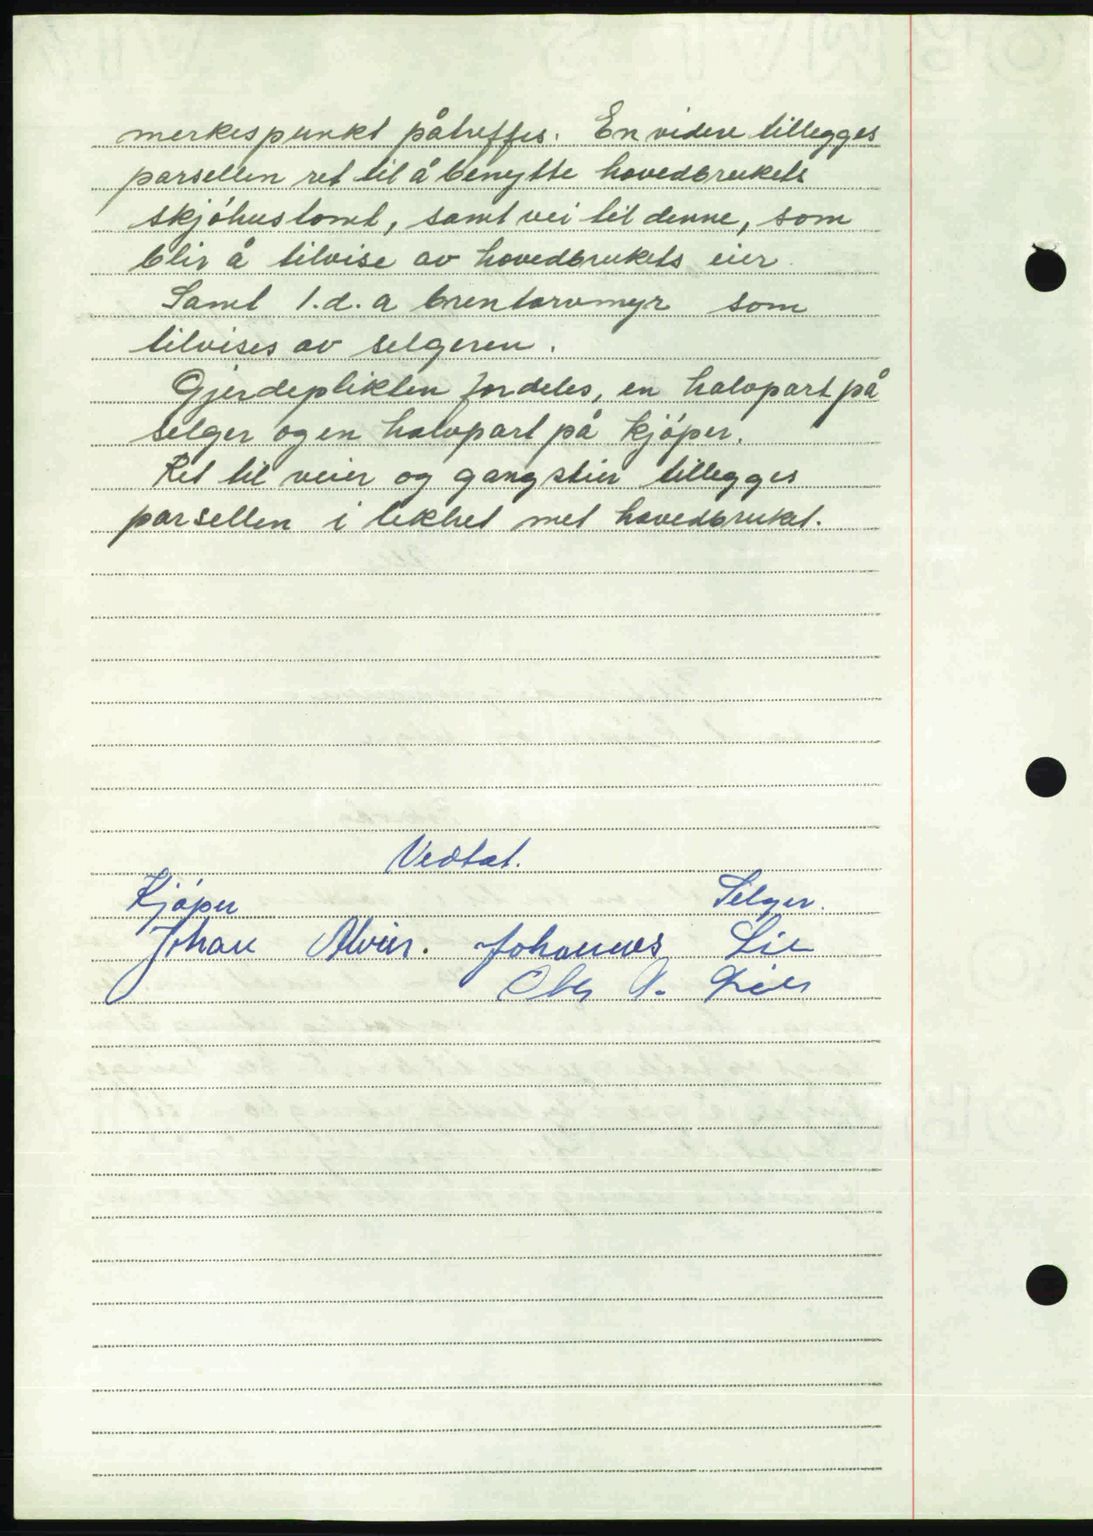 merkespunkt påtreffes. En videre tillegges
parsellen ret til å benytte hovedbrukets
skjøhustomt, samt vei til denne, som
blir å tilvise av hovedbrukets eier.
Samt 1. d. a brentorvmyr som
tilvises av selgeren.
Gjerdeplikten fordeles, en halvpart på
selger og en halvpart på kjøper.
Ret til veier og gangstier tillegges
parsellen i likhet met hovedbruket.
Vedtat.
Kjøper Selger.
Johan Johannes Lie
N.